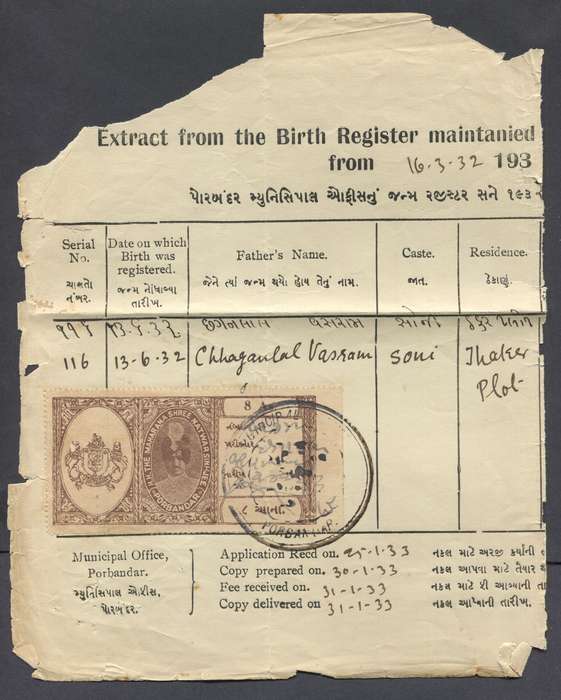 Extract from the Birth Register maintanied
from 16-3-32 193
પોરબંદર મ્યુનિસિપાલ ઓફીસનું જન્મ રજીસ્ટર સને ૧૯૩
Serial No. Date on which Birth was registered. Father's Name. Caste. Residence.
ચાલતો નંબર. જન્મ નોંધાવ્યા તારીખ. જેને ત્યાં જન્મ થયો હોય તેનું નામ. જાત. ઠેકાણું.
૧૧૬ ૧૩.૬.૩૨ છગનલાલ વસરામ સોની
116 13-6-32 Chhaganlal Vasram Soni Thaker Plot
8
H.H. THE MAHARANA SHREE NATWAR SINHJEE
PORBANDAR
PORBANDAR
Municipal Office,
Porbandar.
મ્યુનિસિપાલ ઓફીસ,
પોરબંદર.
Application Recd on. 25-1-33 નકલ માટે અરજી કર્યાની
Copy prepared on. 30-1-33 નકલ આપવા માટે તૈયાર
Fee received on. 31-1-33 નકલ માટે ફી આવ્યાની તા
Copy delivered on 31-1-33 નકલ આપ્યાની તારીખ.